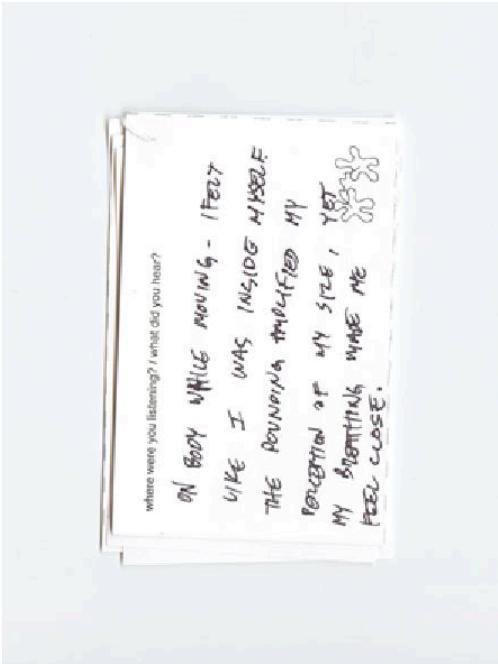 where were you listening? / what did you hear?
ON BODY WHILE MOVING - I FELT
LIKE I WAS INSIDE MYSELF
THE POUNDING AMPLIFIED MY
PERCEPTION OF MY SIZE, YET
MY BREATHING MADE ME
FEEL CLOSE.